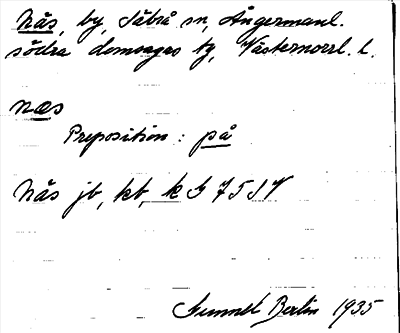 Näs, by, Säbrå sn, Ångermanl.
södra domsagas tg, Västernorrl. l.
næs
Preposition: på
Näs jb, kb, k G 7 5 J V
Gunnel Berlin 1935